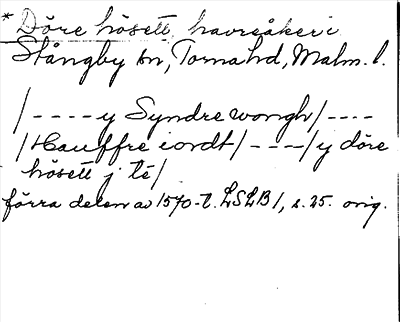 * Döre hösett, havreåker i
Stångby sn, Torna hd, Malm. l.
/----y Syndre wongh/----
/Hauffre iordt/----/y döre
hösett j té/
förra delen av 1570-t. LSLB 1, s. 25. orig.